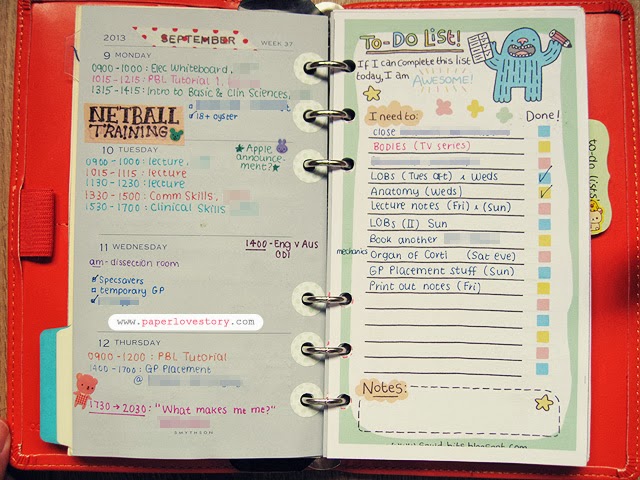 2013
SEPTEMBER
WEEK 37
9 MONDAY
0900-1000: Exec Whiteboard.
1015-1215: PBL Tutorial 1.
1315-1415: Intro to Basic & Clin Sciences.
18+ oyster
NETBALL
TRAINING
10 TUESDAY
0900-1000: lecture.
1015-1115: lecture
1130-1230: lecture
1330-1500: Comm Skills.
1530-1700: Clinical Skills
★Apple
announce-
ment?★
11 WEDNESDAY
1400-Eng v Aus
ODI
am-dissection room
Specsavers
temporary GP
www.paperlovestory.com
12 THURSDAY
0900-1200: PBL Tutorial
1400-1700: GP Placement
@
1730→2030: "What makes me me?"
SMYTHSON
TO-DO LIST!
If I can complete this list
today, I am AWESOME!
I need to:
Done!
close
BODIES (TV series)
LOBs (Tues aft) & Weds
Anatomy (Weds)
Lecture notes (Fri) & (Sun)
LOBs (II) Sun
Book another
mechanics Organ of Corti (Sat eve)
GP Placement stuff (Sun)
Print out notes (Fri)
Notes:
to-do lists